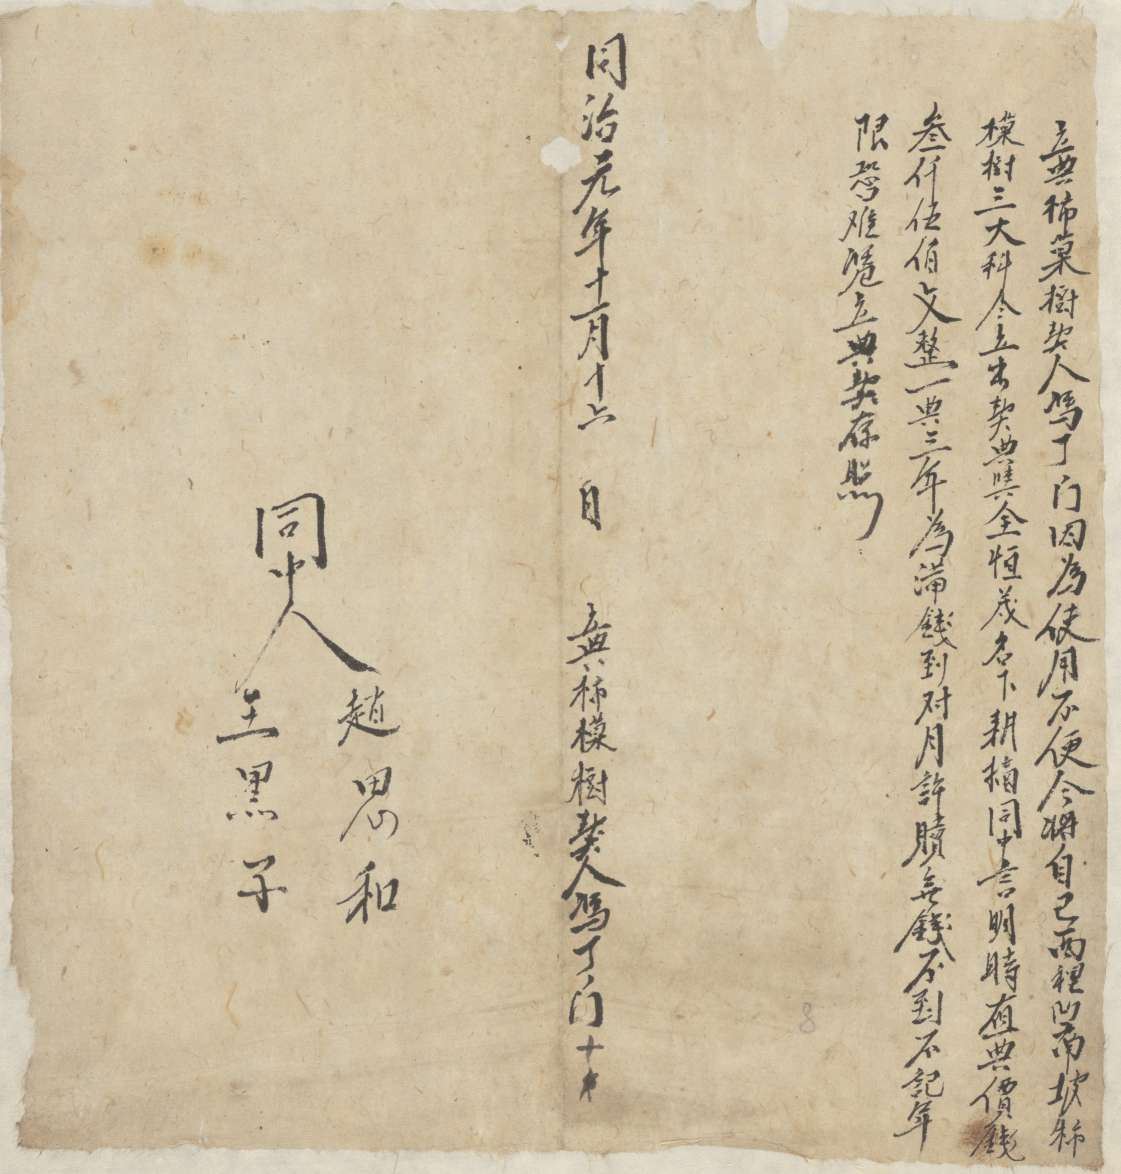 立典柿菓樹契人馮丁门因為使用不便今將自己西裡凹南坡柿
樸樹三大科今立出契典與全恒茂名下耕植同中言明時值典價錢
叁仟伍佰文整一典三年為滿錢到对月許贖無錢不到不記年
限恐难凴立典契存照
同治元年十一月十六 日 立典柿樸樹契人馮丁门十
同中人
趙思和
王黑子
8